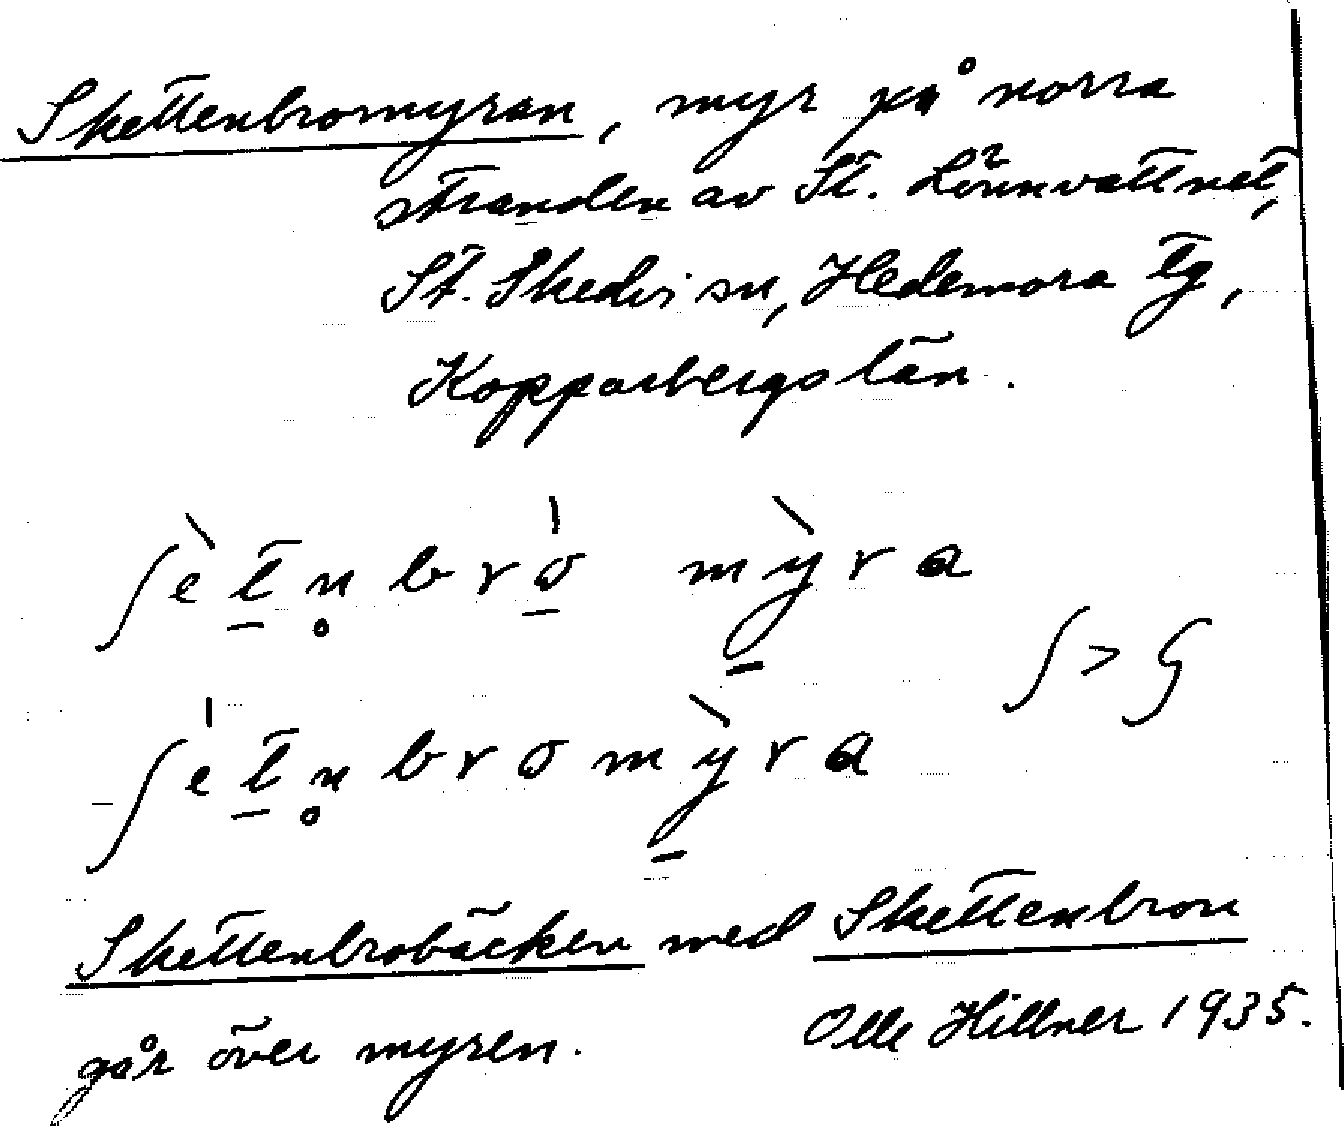 Skettenbromyran, myr på norra
stranden av St. Lönnvattnet,
St. Skedvi sn, Hedemora tg,
Kopparbergs län.
ʃὲt̲n̥brɷ̲́ mỳ̲ra
ʃ > ʂ
ʃét̲n̥brɷmỳ̲ra
Skettenbrobäcken med Skettenbron
går över myren. Olle Hillner 1935.